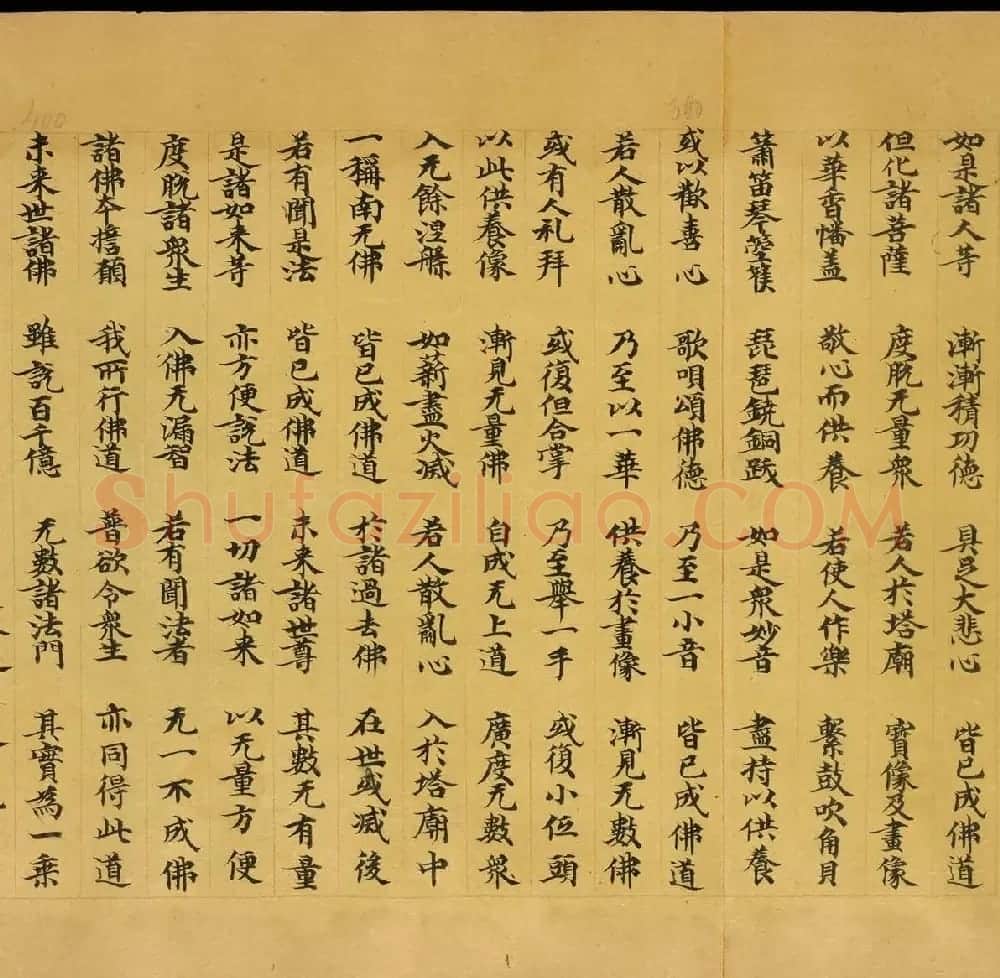 如是諸人等 漸漸積功德 具足大悲心 皆已成佛道
但化諸菩薩 度脫无量衆 若人於塔廟 寶像及畫像
以華香幡盖 敬心而供養 若使人作樂 擊鼓吹角貝
簫笛琴箜篌 琵琶鐃銅鈸 如是衆妙音 盡持以供養
或以歡喜心 歌唄頌佛德 乃至一小音 皆已成佛道
若人散亂心 乃至以一華 供養於畫像 漸見无數佛
或有人礼拜 或復但合掌 乃至舉一手 或復小伍頭
以此供養像 漸見无量佛 自成无上道 廣度无數衆
入无餘涅槃 如薪盡火滅 若人散亂心 入於塔廟中
一稱南无佛 皆已成佛道 於諸過去佛 在世或滅後
若有聞是法 皆已成佛道 未来諸世尊 其數无有量
是諸如来等 亦方便說法 一切諸如来 以无量方便
度脫諸衆生 入佛无漏智 若有聞法者 无一不成佛
諸佛本擔願 我所行佛道 普欲令衆生 亦同得此道
未来世諸佛 雖說百千億 无數諸法門 其實為一乘
400
380
Shufaziliao.COM